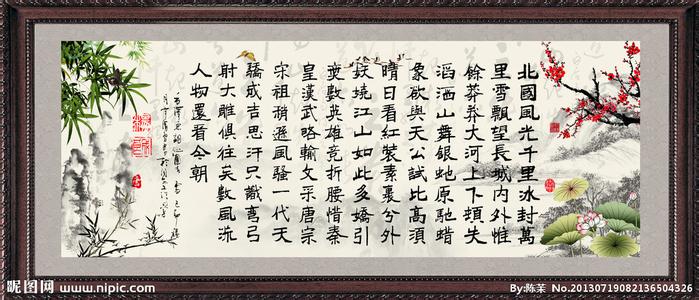 北國風光千里冰封萬
里雪飄望長城內外惟
餘莽莽大河上下頓失
滔滔山舞銀蛇原馳蜡
象欲與天公試比高須
晴日看紅裝素裹分外
妖嬈江山如此多嬌引
無數英雄竞折腰惜秦
皇漢武略輸文采唐宗
宋祖稍遜風騷一代天
驕成吉思汗只識彎弓
射大雕俱往矣數風流
人物還看今朝
昵图网 www.nipic.com
By:陈茉 No.20130719082136504326